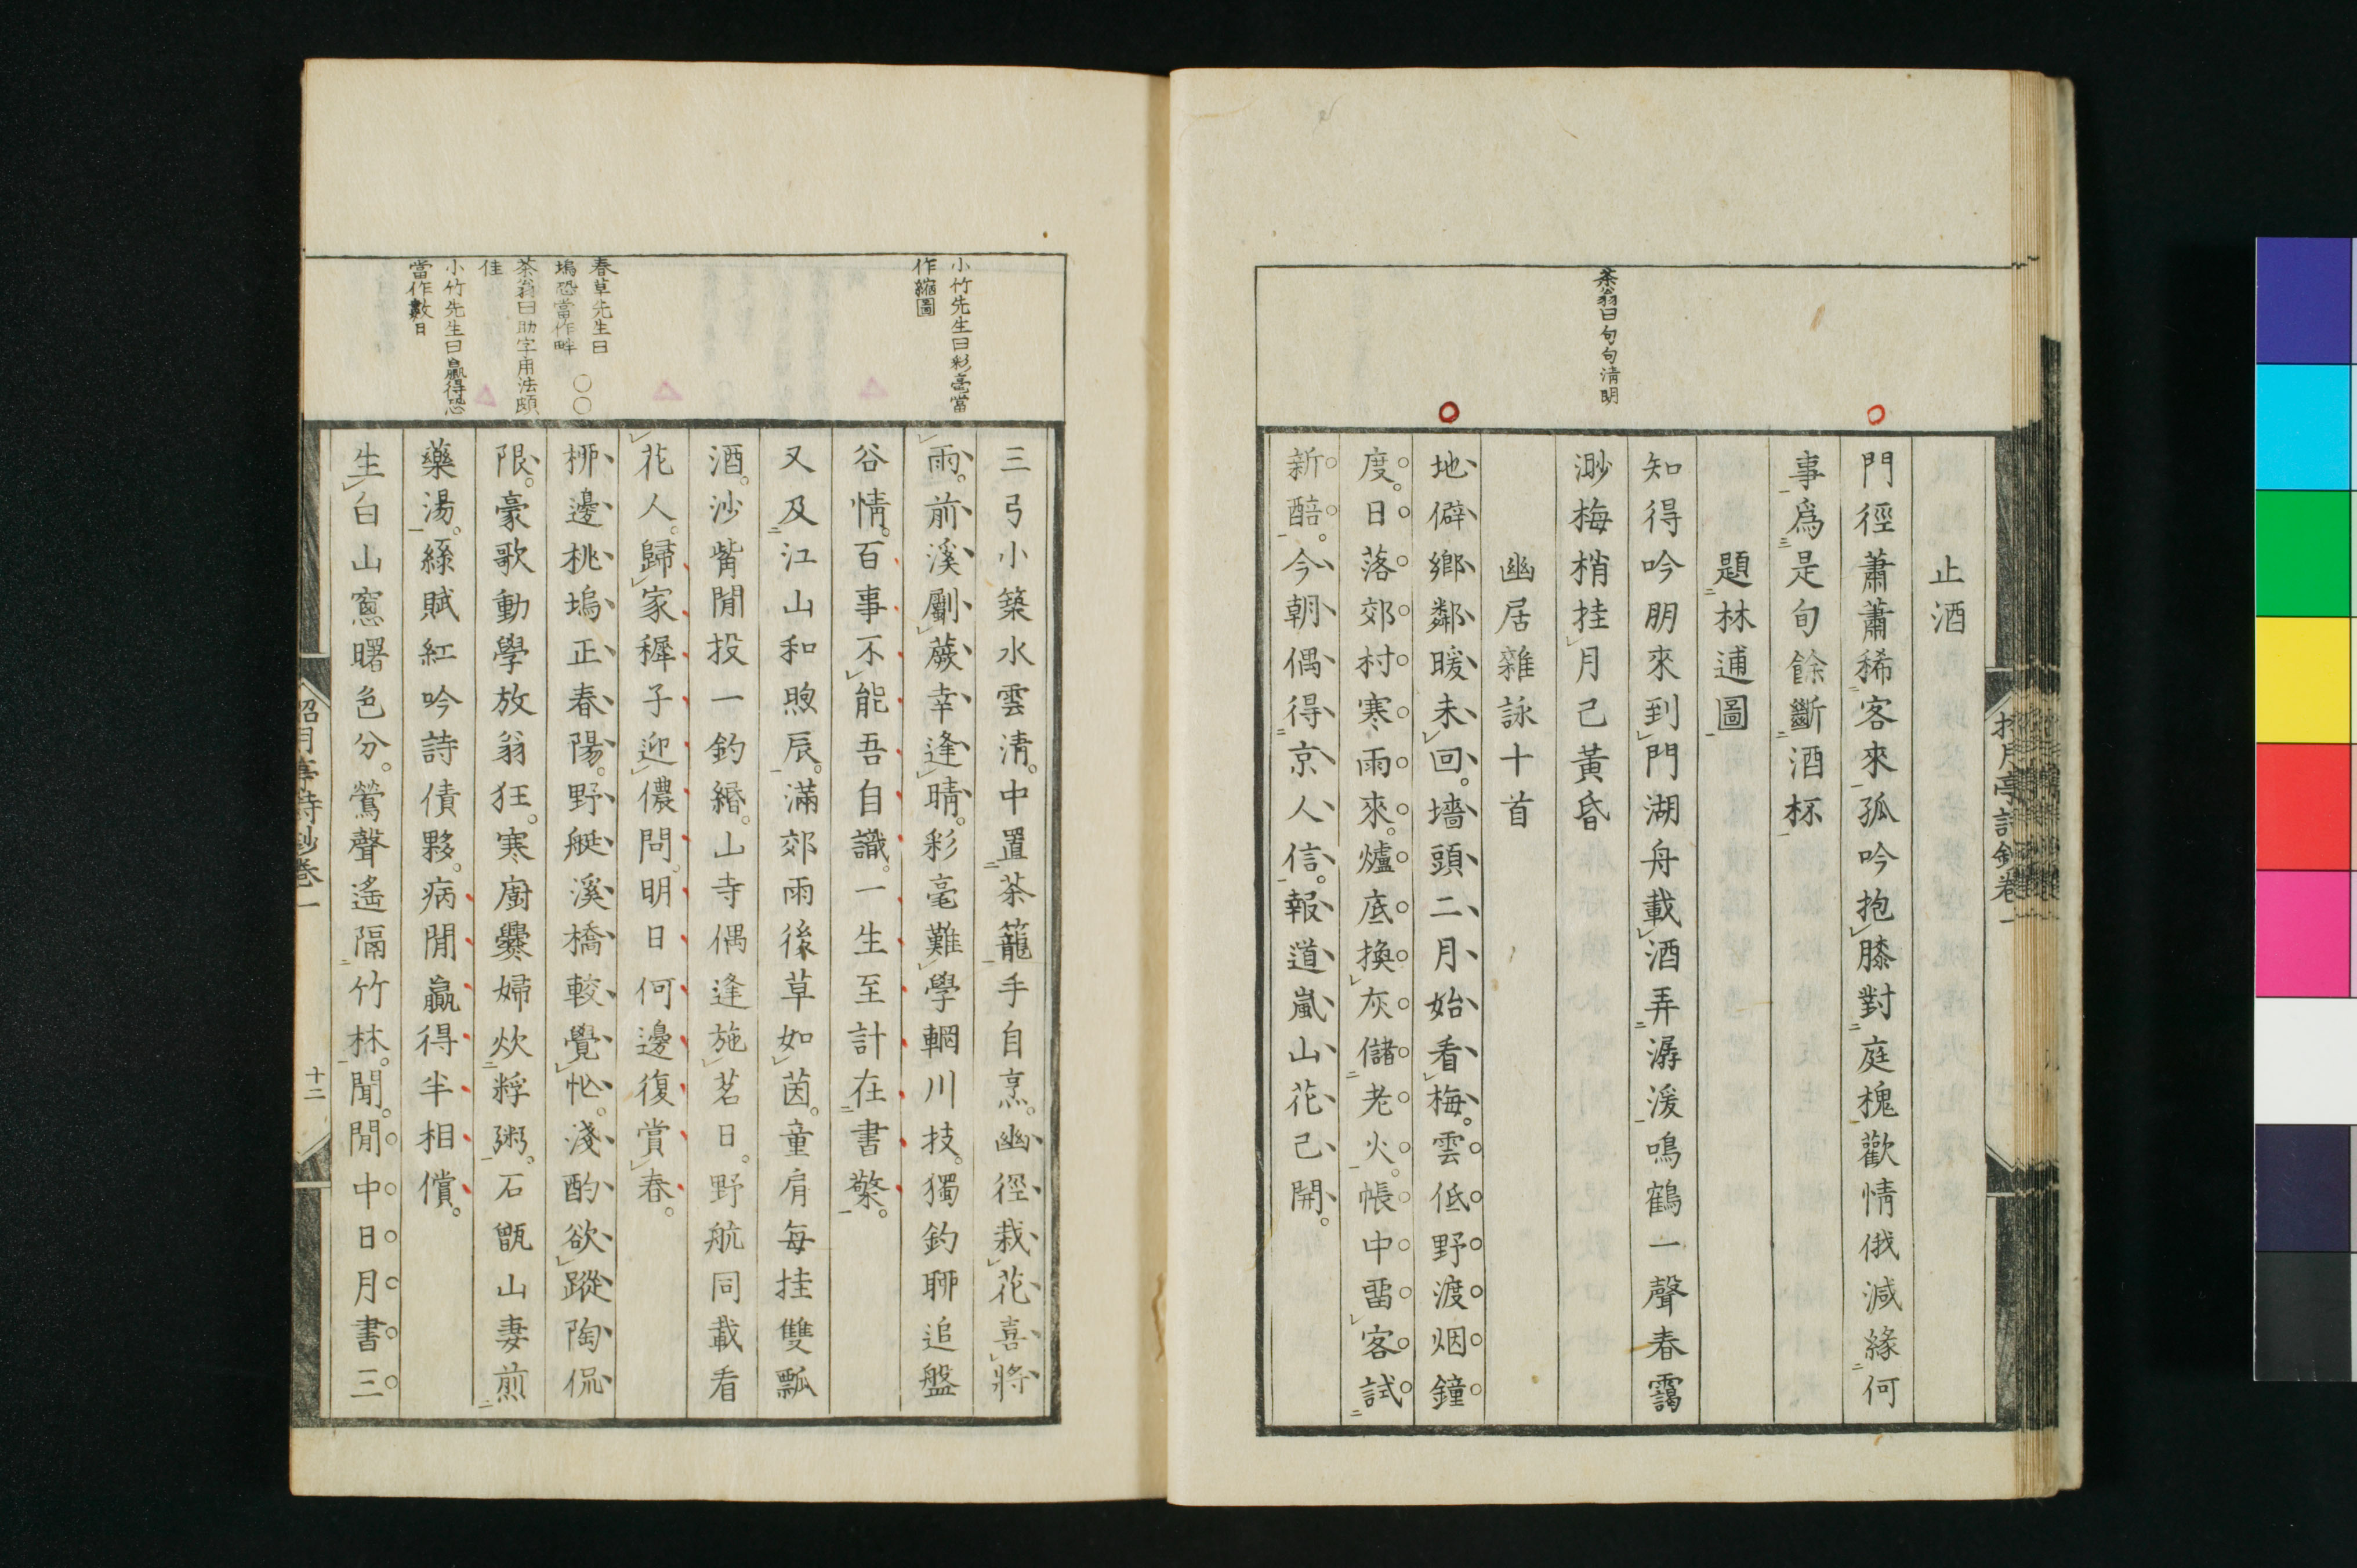 招月亭詩鈔卷一
茶翁曰句句清明
止酒
門徑蕭蕭稀客來孤吟抱膝對庭槐歡情俄減緣何
事爲是旬餘斷酒杯
題林逋圖
知得吟朋來到門湖舟載酒弄潺湲鳴鶴一聲春靄
渺梅梢挂月已黃昏
幽居雜詠十首
地僻鄉鄰暖未回。墻頭二月始看梅。雲低野渡烟鐘
度。日落郊村寒雨來。爐底換灰儲老火。帳中留客試
新醅。今朝偶得京人信。報道嵐山花已開。
小竹先生曰彩毫當
作縮圖
春草先生曰
塢恐當作畔
茶翁曰助字用法頗
佳
小竹先生曰贏得恐
當作數日
三弓小築水雲清。中置茶籠手自烹。幽徑栽花喜將
雨。前溪劚蕨幸逢晴。彩毫難學輞川技。獨釣聊追盤
谷情。百事不能吾自識。一生至計在書檠。
又及江山和煦辰。滿郊雨後草如茵。童肩每挂雙瓢
酒。沙觜閒投一釣緡。山寺偶逢施茗日。野航同載看
花人。歸家穉子迎儂問。明日何邊復賞春。
柳邊桃塢正春陽。野艇溪橋較覺忙。淺酌欲蹤陶侃
限。豪歌動學放翁狂。寒廚爨婦炊粰粥。石甑山妻煎
藥湯。繇賦紅吟詩債夥。病閒贏得半相償。
生白山窻曙色分。鶯聲遙隔竹林聞。閒中日月書三
招月亭詩鈔卷一
十二